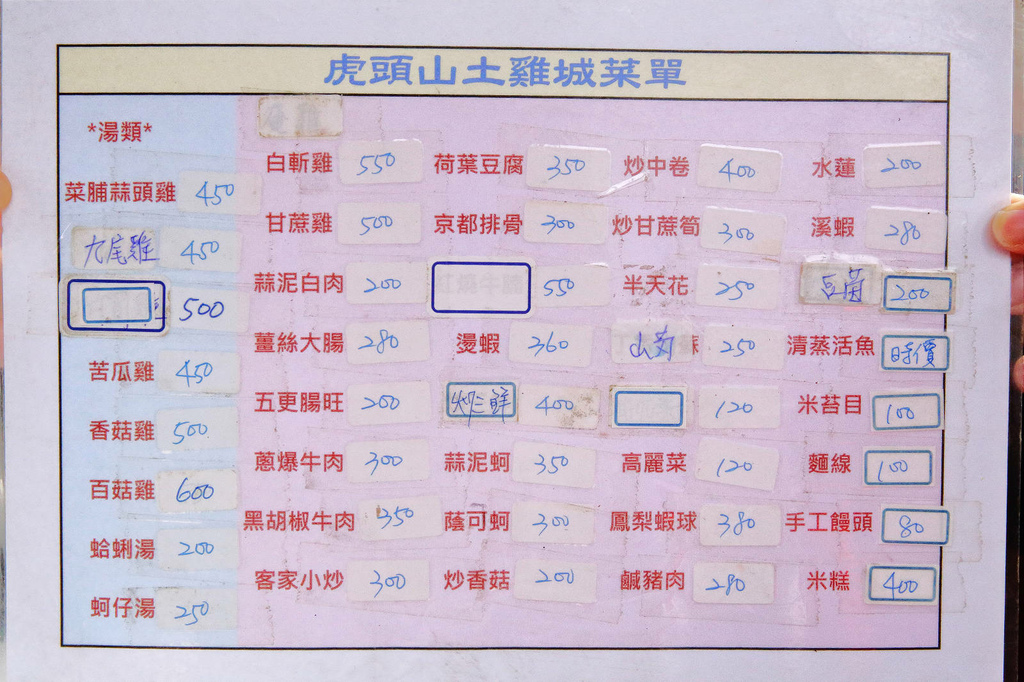 虎頭山土雞城菜單
*湯類*
菜脯蒜頭雞 450
九尾雞 450
500
苦瓜雞 450
香菇雞 500
百菇雞 600
蛤蜊湯 200
蚵仔湯 250
白斬雞 550
甘蔗雞 500
蒜泥白肉 200
薑絲大腸 280
五更腸旺 200
蔥爆牛肉 300
黑胡椒牛肉 350
客家小炒 300
荷葉豆腐 350
京都排骨 300
550
燙蝦 360
炒三鮮 400
蒜泥蚵 350
蔭可蚵 300
炒香菇 200
炒中卷 400
炒甘蔗筍 300
半天花 250
山 250
120
高麗菜 120
鳳梨蝦球 380
鹹豬肉 280
水蓮 200
溪蝦 280
豆 200
清蒸活魚 時價
米苔目 100
麵線 100
手工饅頭 80
米糕 400